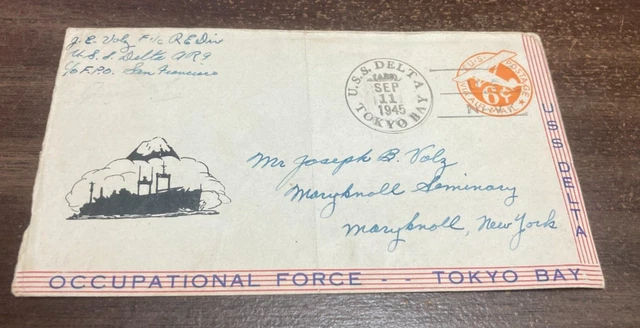 J. E. Volz F 1/c R.E. Div
U.S.S. Delta AR9
c/o F.P.O. San Francisco
U.S.S. DELTA
(AR9)
SEP
11
1945
TOKYO BAY
U.S. POSTAGE
6¢
VIA AIR MAIL
N.Y.
Mr Joseph B. Volz
Maryknoll Seminary
Maryknoll, New York
USS DELTA
OCCUPATIONAL FORCE - - TOKYO BAY